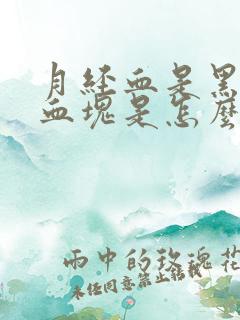 月經血是黑
血塊是怎麼
雨中的玫瑰花
未经同意禁止转载